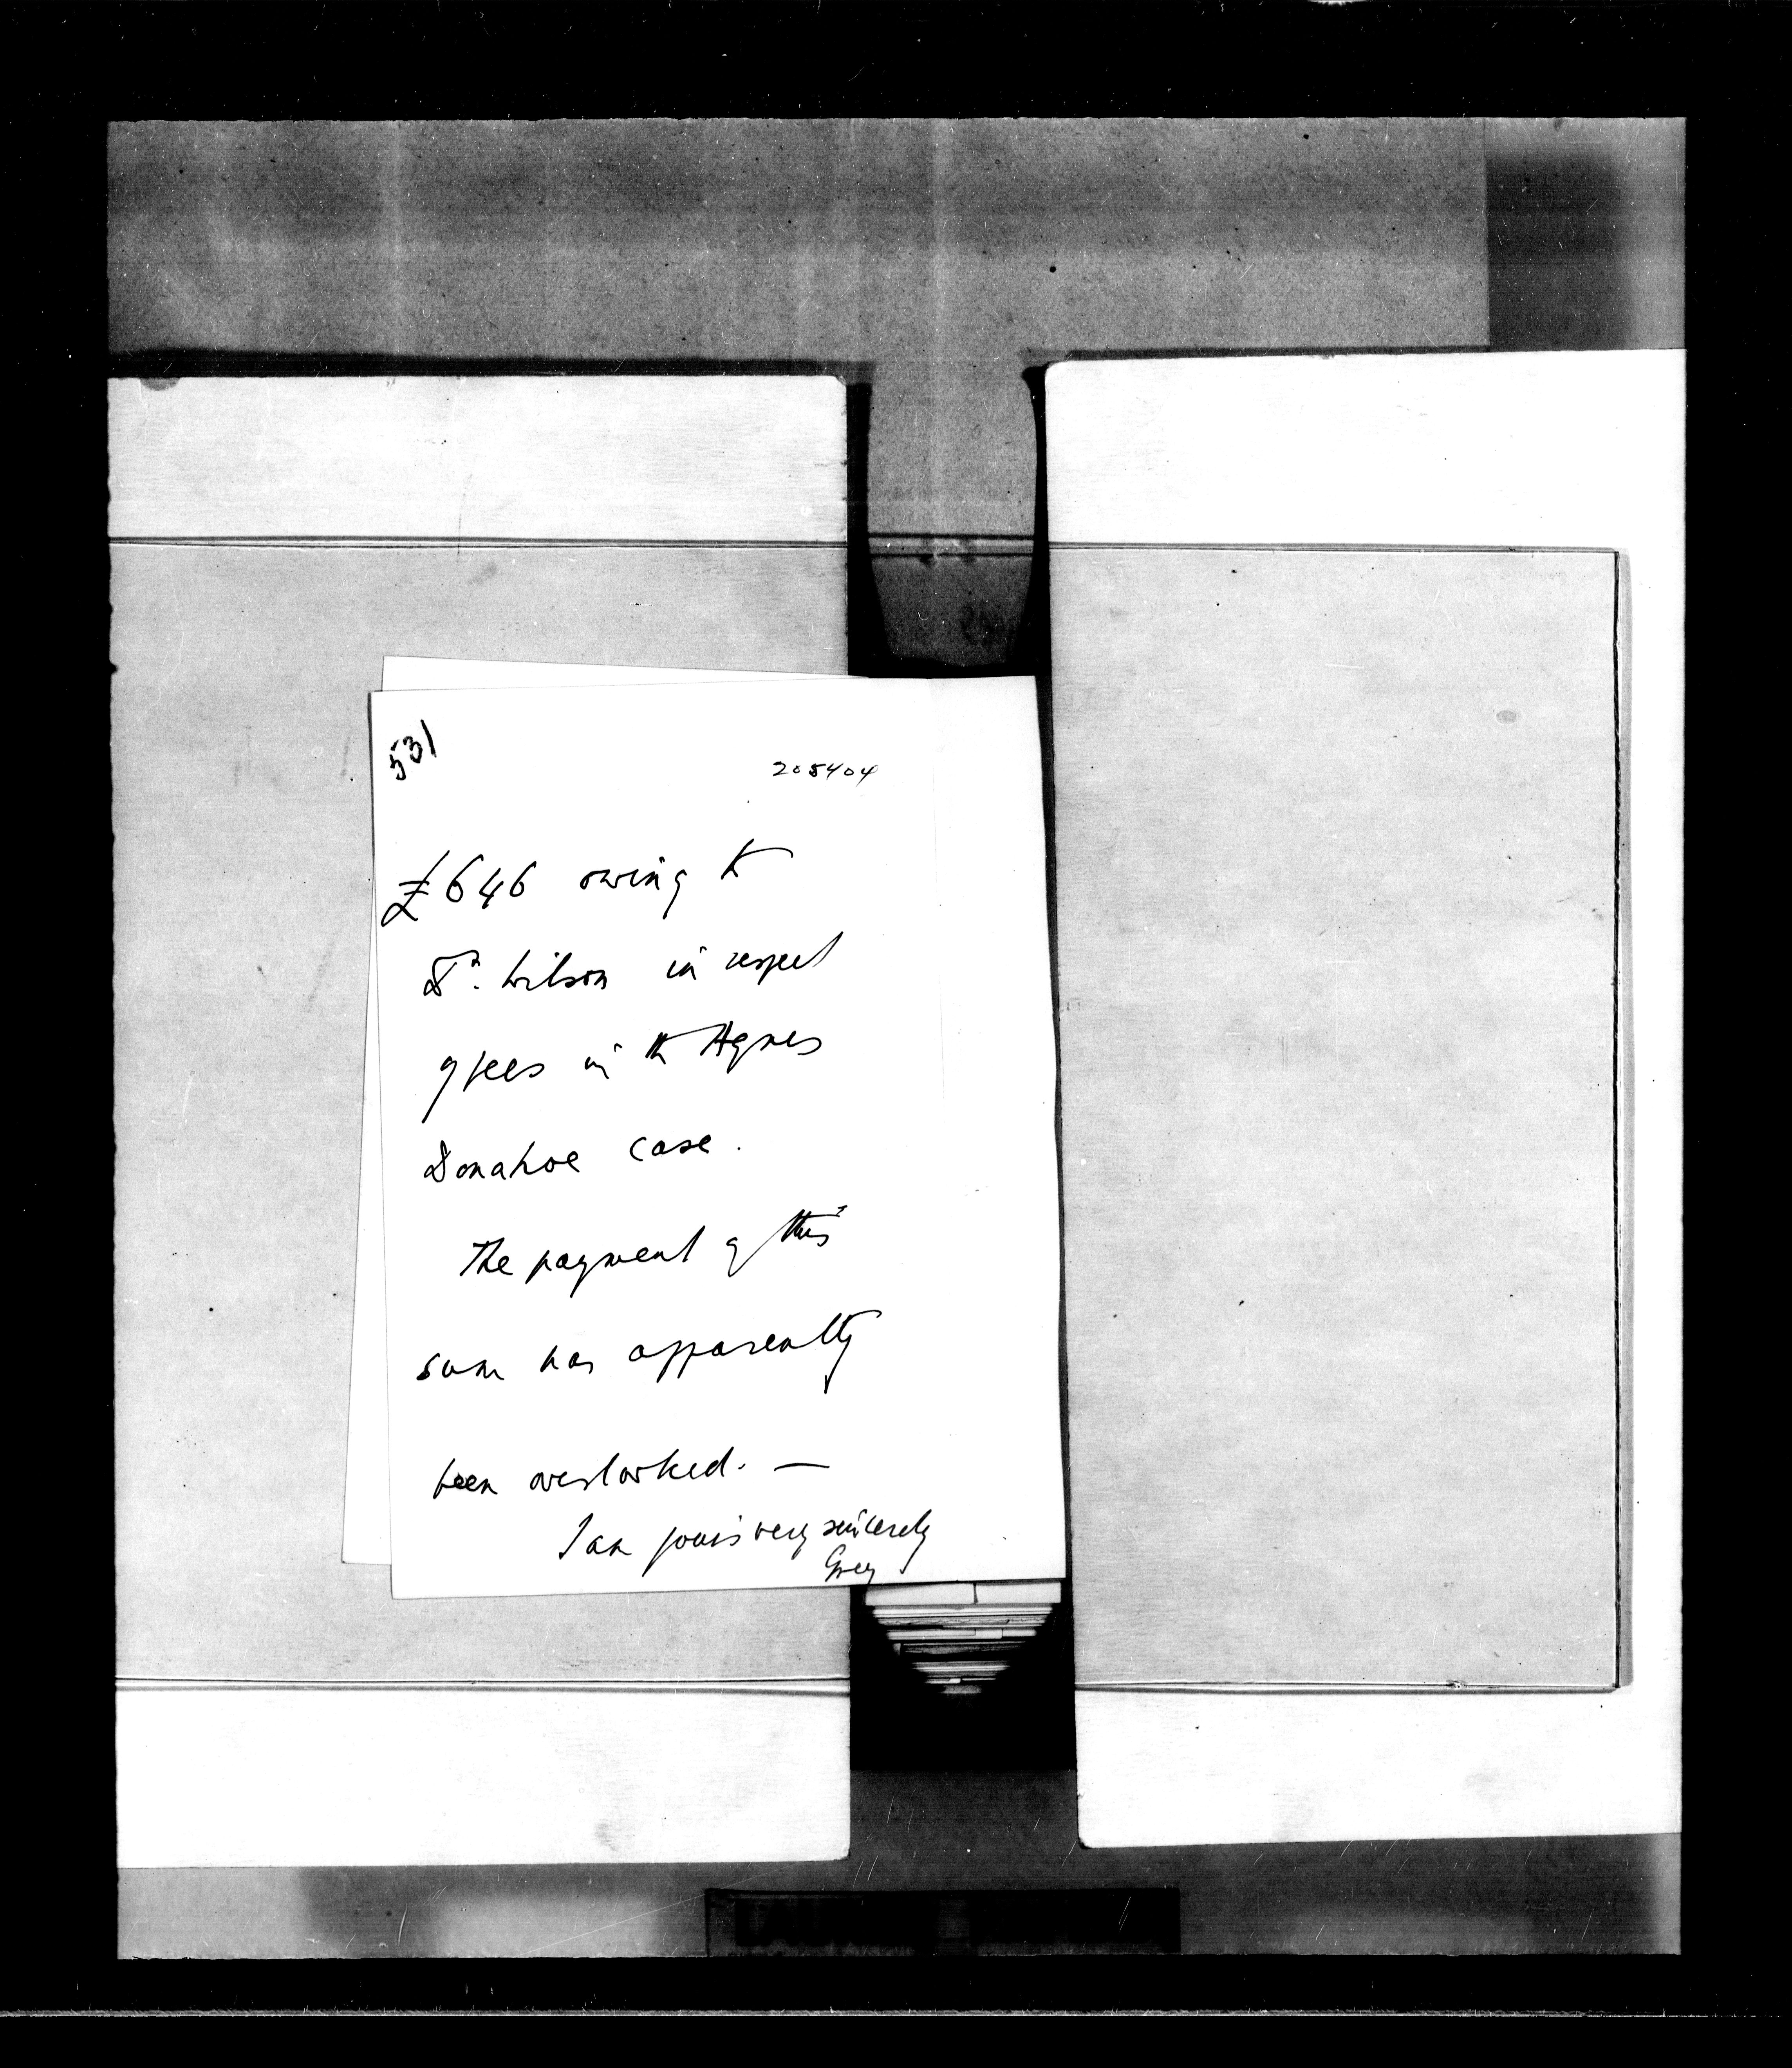 531
205404
£646 owing to
Dr. Wilson in respect
of fees in the Agnes
Donahoe case.
The payment of this
sum has apparently
been overlooked. —
I am yours very sincerely
Grey